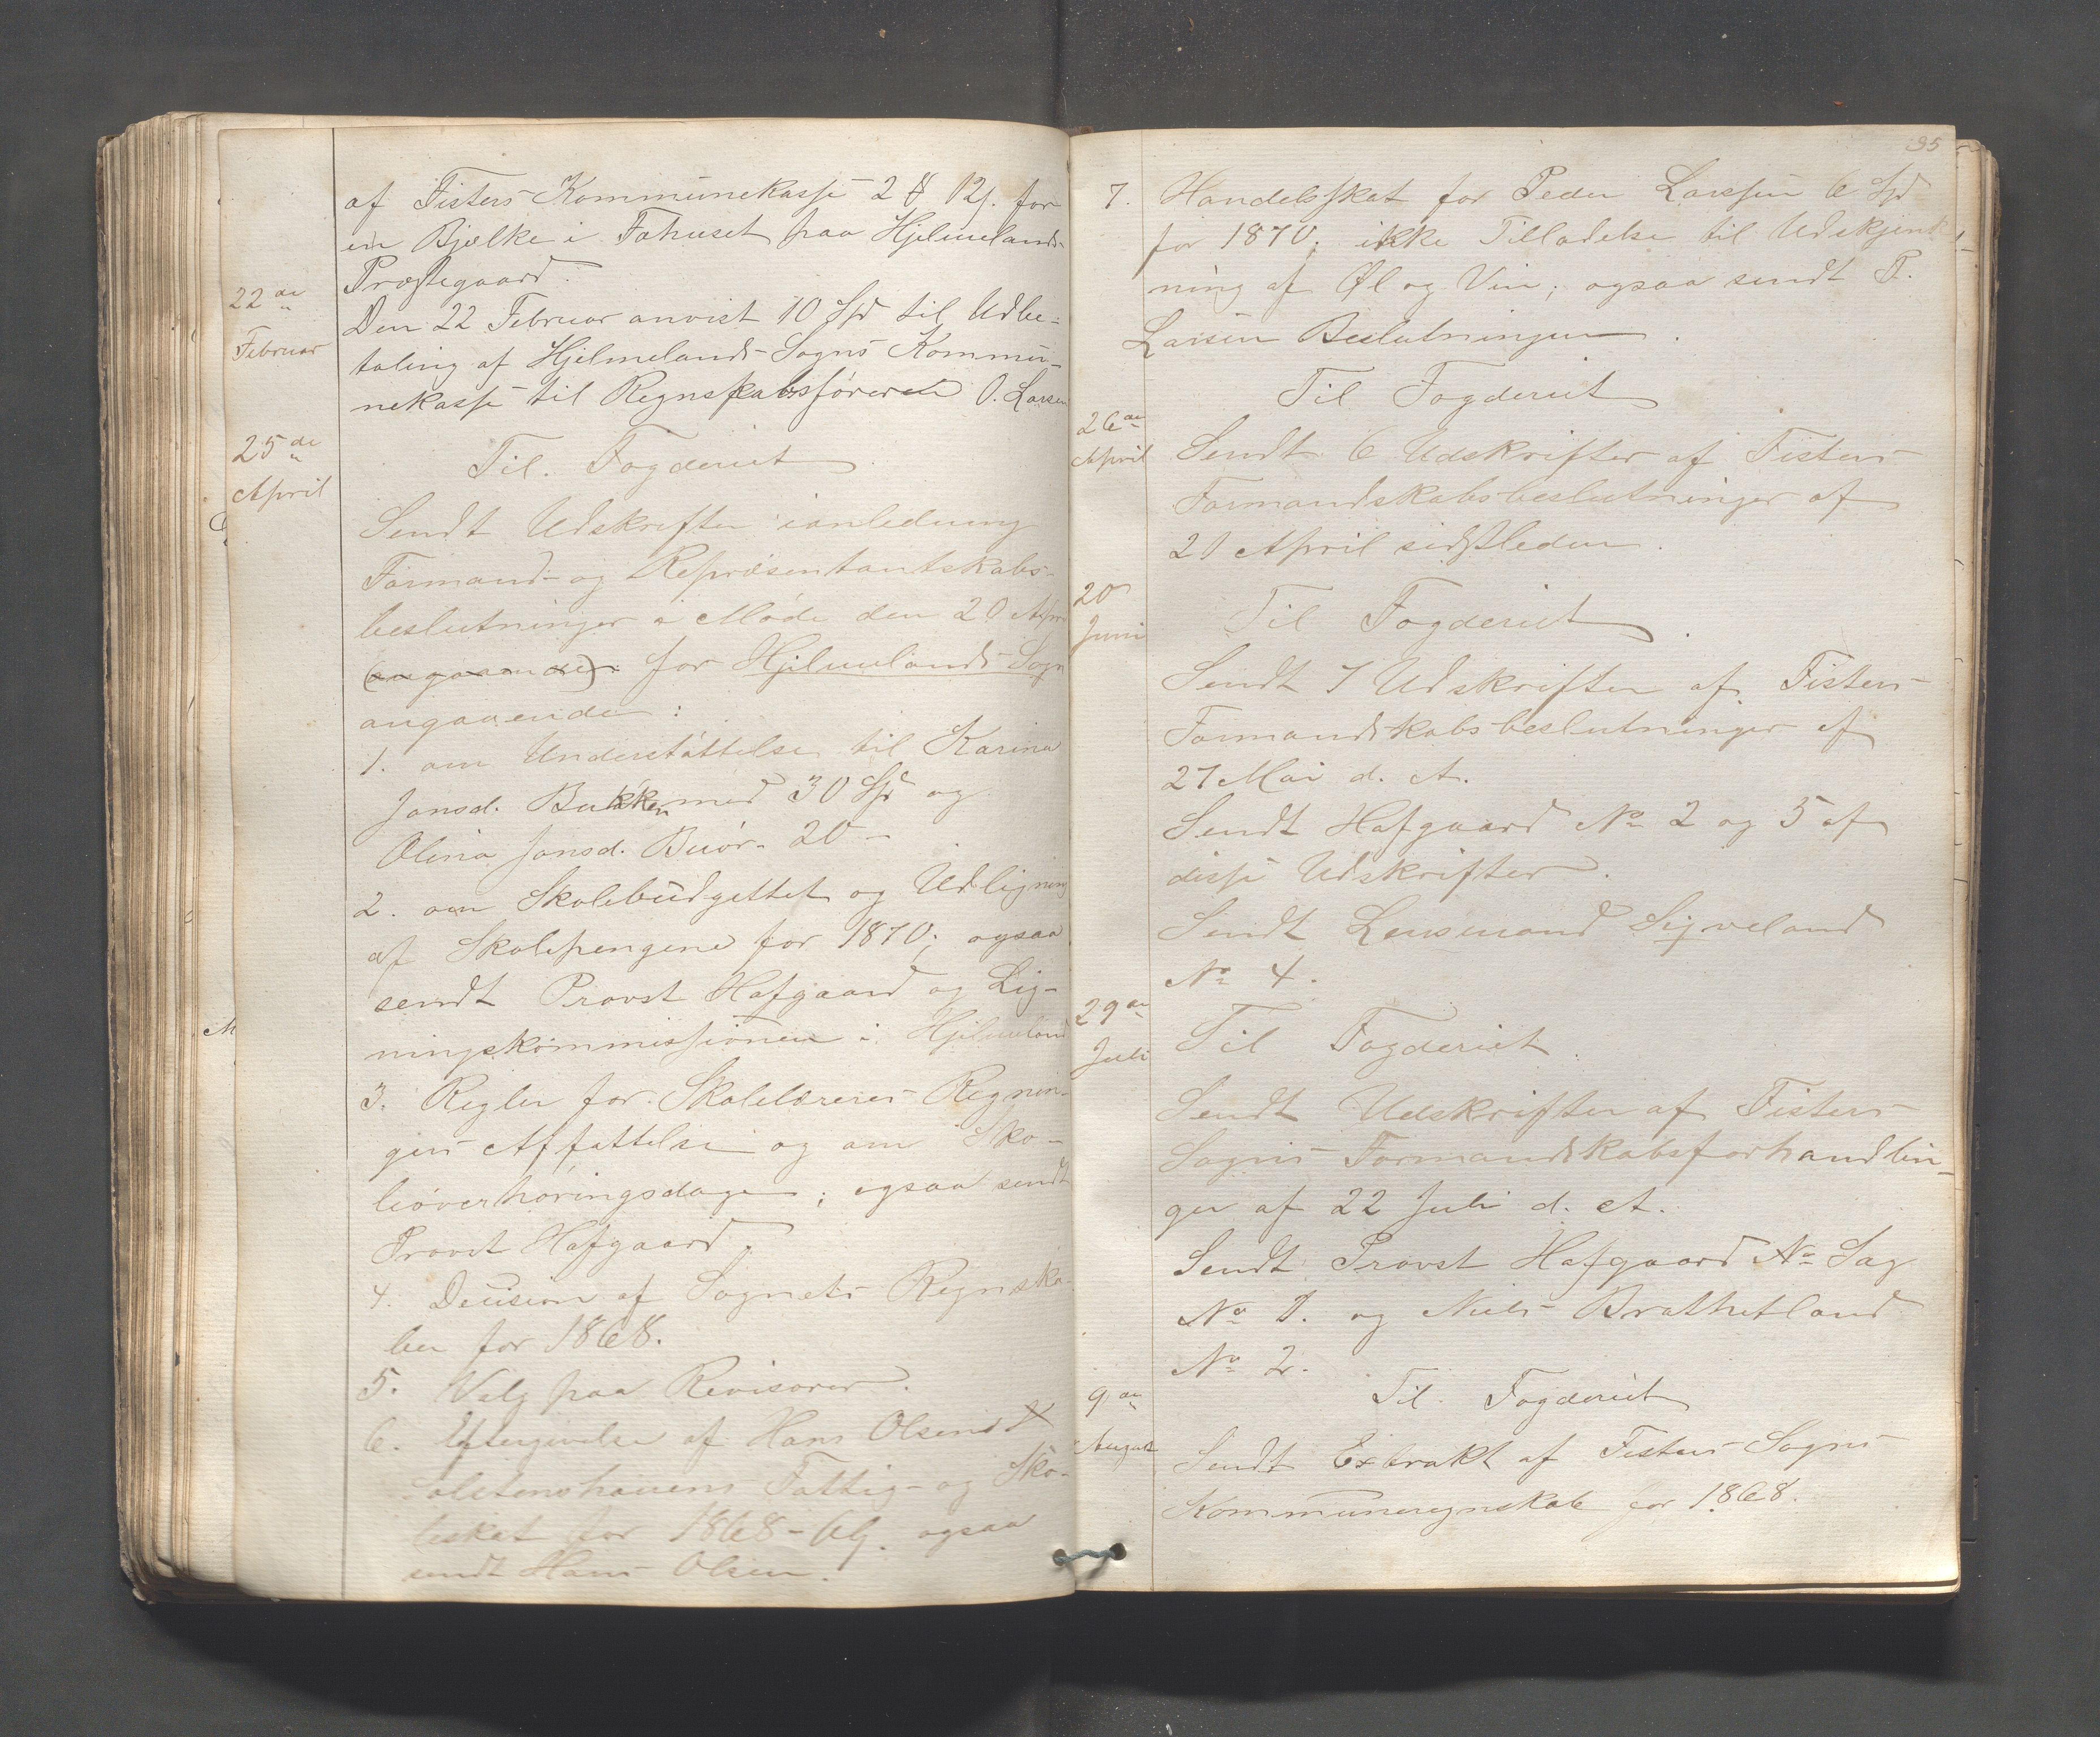 af Fisters Kommunekasse 2 ₰ 12ſ. for
en Bjælke i Fæhuset paa Hjelmelands-
Præstegaard.
22de
Februar
Den 22 Februar anvist 10 Spd til Udbe-
taling af Hjelmelands-Sogns Kommu-
nekasse til Regnskabsføreren O. Larsen
25de
April
Til Fogderiet
Sendt Udskrifter ianledning
Formand- og Repræsentantskabs-
beslutninger i Møde den 20 April
(angaaende) for Hjelmelands-Sogn
angaaende:
1. om Understøttelse til Karina
Jonsd. Bakken med 30 Spd og
Olina Jonsd. 20 -
2. om Skolebudgettet og Udligning
af Skolepengene for 1870; ogsaa
sendt Provst Hafgaard og Lig-
ningskommissionen i Hjelmeland
3. Regler for Skolelæreres Regnin-
gers Affattelse og om Sko-
leoverhøringsdage; ogsaa sendt
Provst Hafgaard.
4. Decision af Sognets Regnska-
ber for 1868.
5. Valg paa Revisorer.
6. Eftergivelse af Hans Olsens
Fattig- og Sko-
leskat for 1868-69. ogsaa
sendt Hans Olsen.
35
7. Handelsskat for Peder Larssen 6 Spd
for 1870; ikke Tilladelse til Udskjenk-
ning af Øl og Vin; ogsaa sendt P.
Larsen Beslutningen.
Til Fogderiet
26de
April
Sendt 6 Udskrifter af Fisters-
Formandskabsbeslutninger af
21 April sidstleden.
20
Juni
Til Fogderiet.
Sendt 7 Udskrifter af Fisters-
Formandskabsbeslutninger af
27 Mai d. A.
Sendt Hafgaard No 2 og 5 af
disse Udskrifter.
Sendt Lensmand Sigveland
No 4.
29de
Juli
Til Fogderiet.
Sendt Udskrifter af Fisters
Sogns Formandskabsforhandlin-
ger af 22 Juli d. A.
Sendt Provst Hafgaard No Sag
No 1. og Niels Brathetland
No 2.
9de
August
Til Fogderiet
Sendt Extrakt af Fisters-Sogns
Kommuneregnskab for 1868.